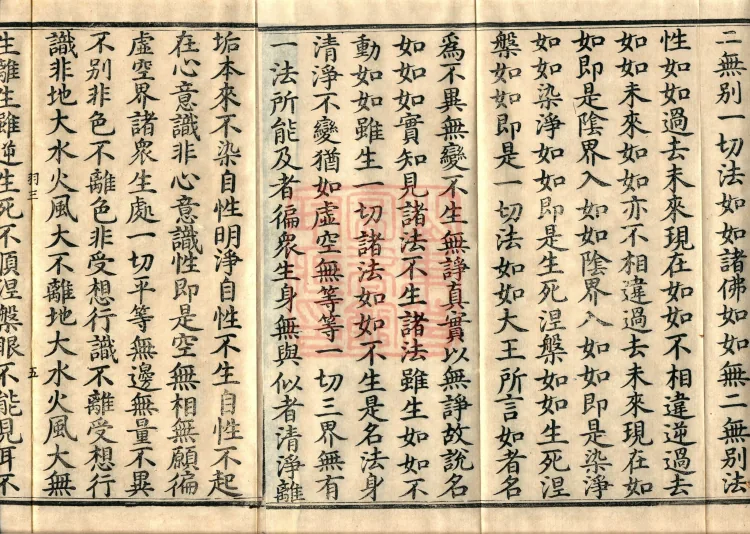 二無別一切法如如諸佛如如無二無別法
性如如過去未來現在如如不相違逆過去
如如未來如如亦不相違過去未來現在如
如即是陰界入如如陰界入如如即是染淨
如如染淨如如即是生死涅槃如如生死涅
槃如如即是一切法如如大王所言如者名
爲不異無變不生無諍真實以無諍故說名
如如如實知見諸法不生諸法雖生如如不
動如如雖生一切諸法如如不生是名法身
清淨不變猶如虛空無等等一切三界無有
一法所能及者徧衆生身無與似者清淨離
垢本來不染自性明淨自性不生自性不起
在心意識非心意識性即是空無相無願徧
虛空界諸衆生處一切平等無邊無量不異
不别非色不離色非受想行識不離受想行
識非地大水火風大不離地大水火風大無
羽三
五
生離生雖逆生死不順涅槃眼不能見耳不